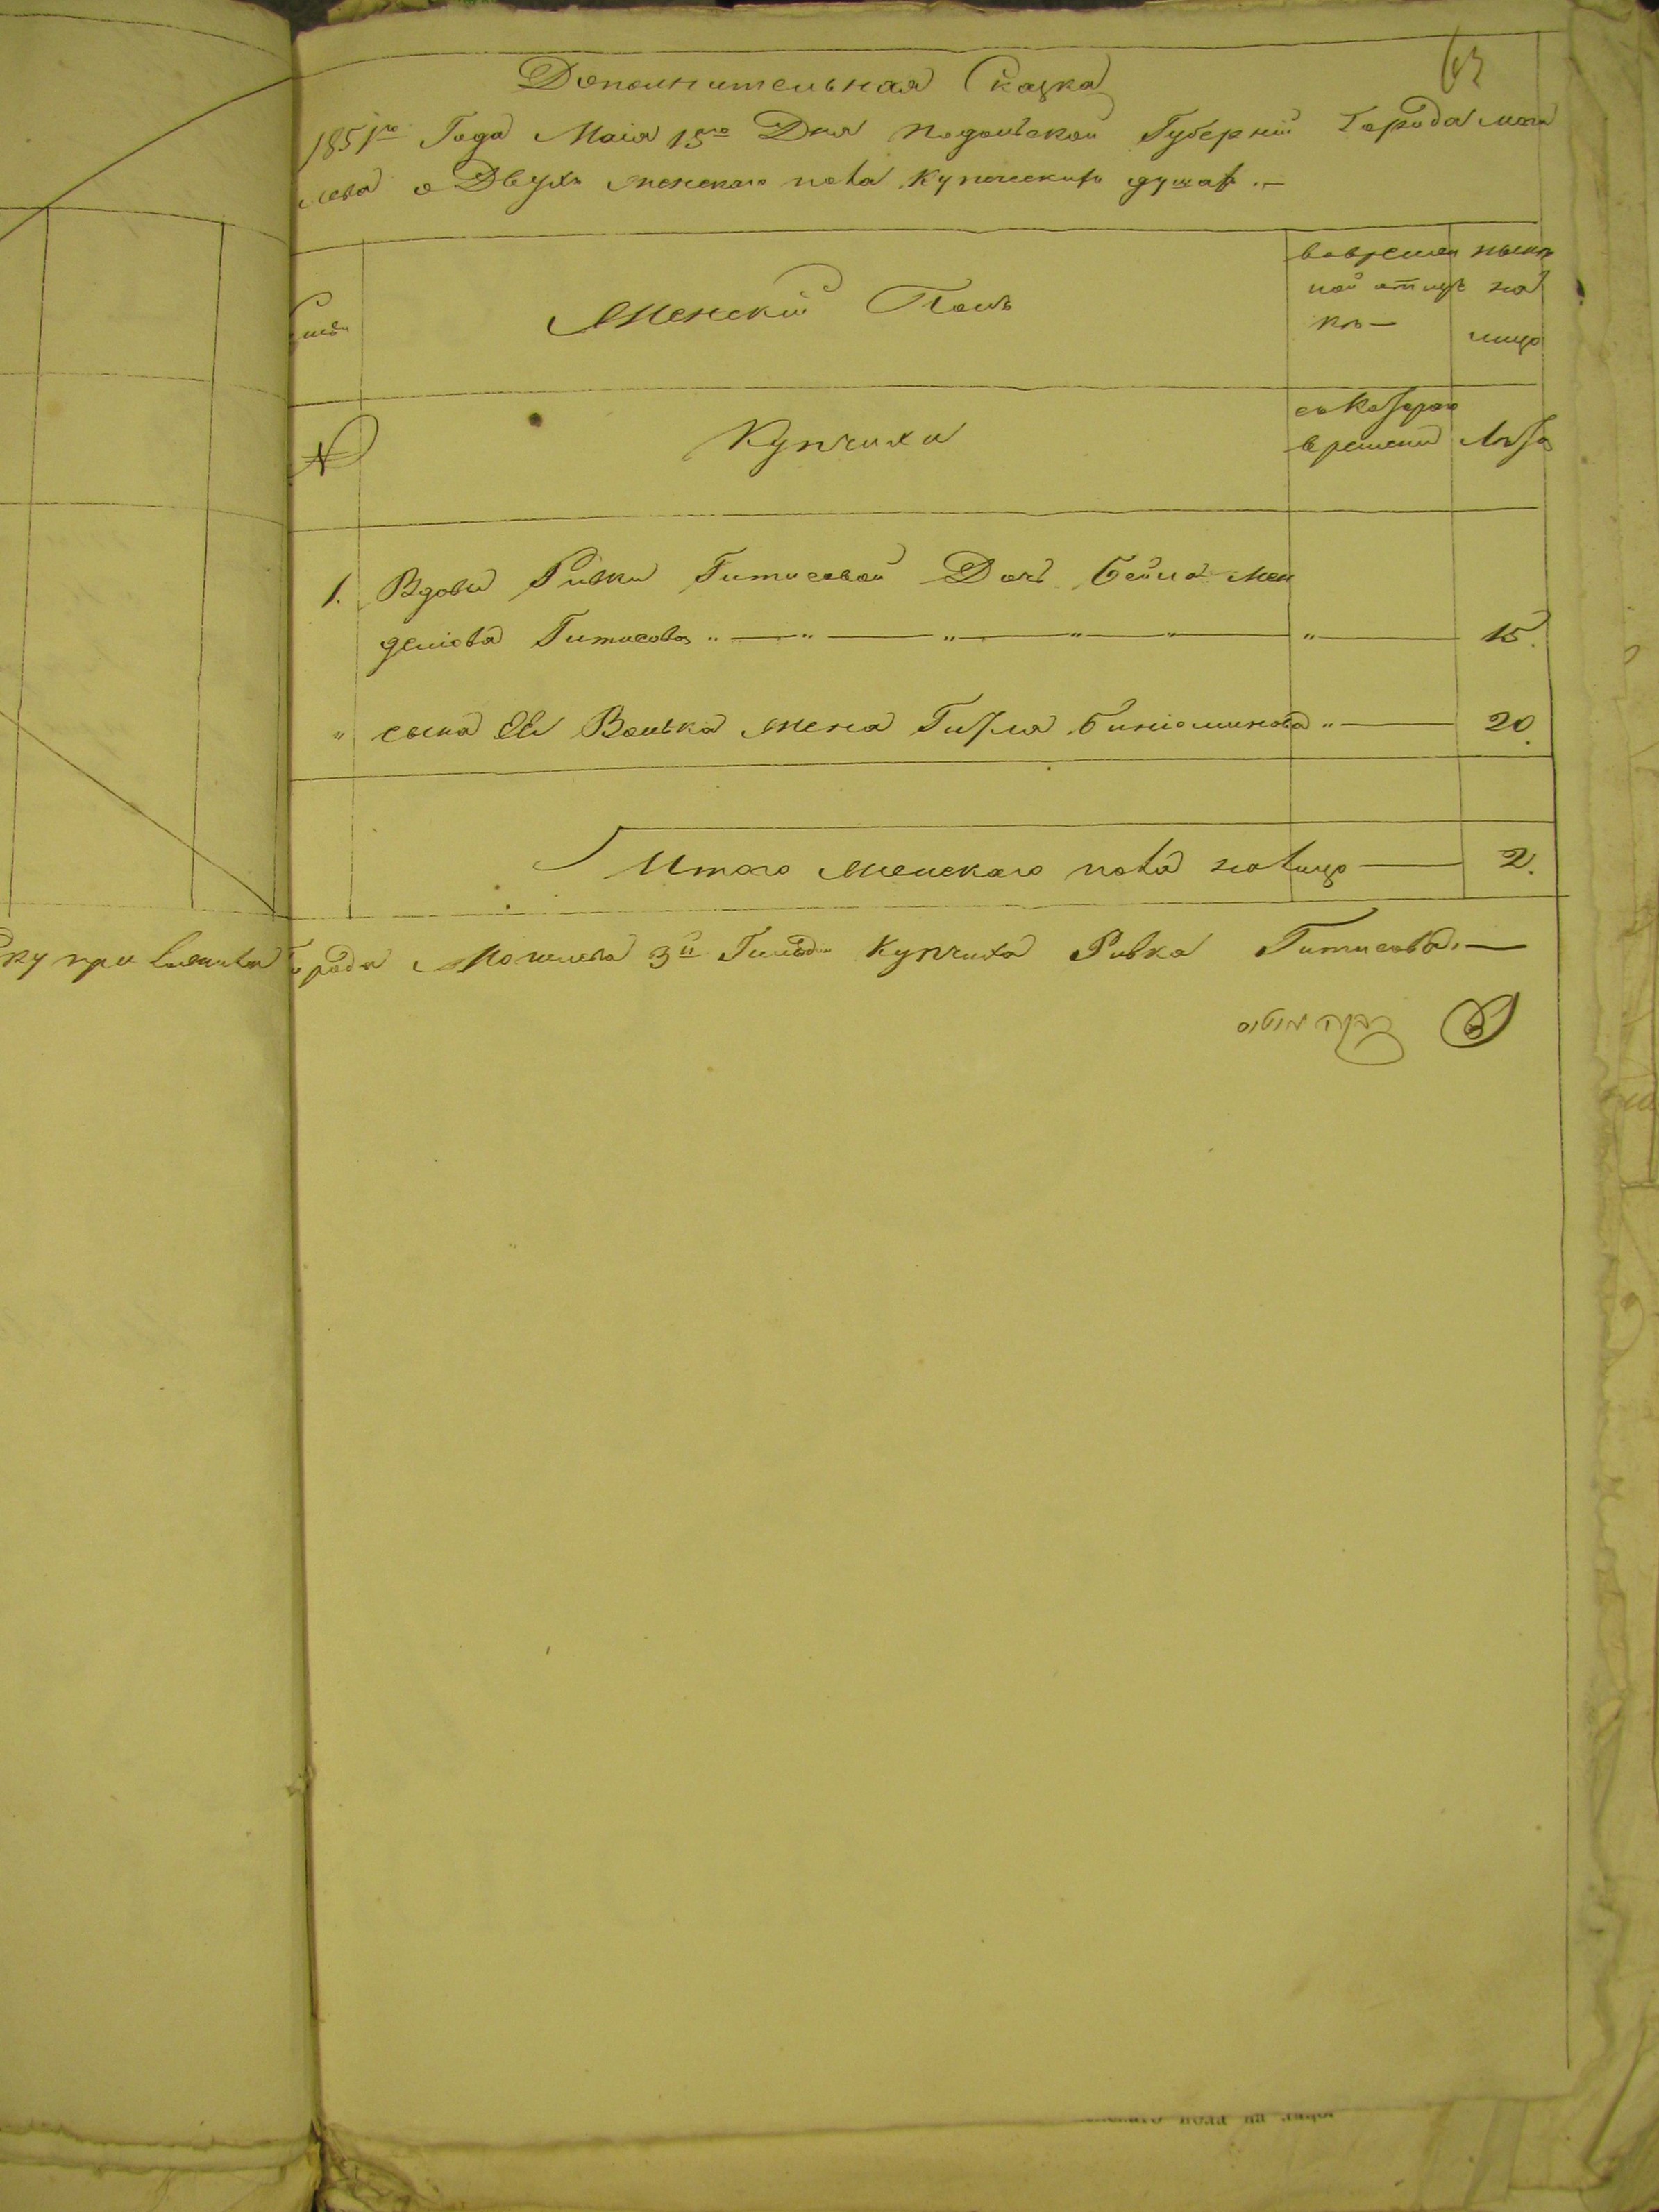 63
Дополнительная Сказка
1851го Года Маія 15го Дня Подольской Губерніи Города Моги
лева о Двухъ женскаго пола купеческихъ душахъ.—
Женскій Полъ
во времен
ной отлуч
кѣ—
нынѣ
на
лицо
№
Купчихи
съ котораго
времени
Лѣта
1. Вдовы Ривки Гитисовой Дочь Бейла Мен
делiова Гитисова " — " — " — " — " — " — 15.
" сына Ея Волька жена Гитля Биніоминова " — 20.
Итого женскаго пола на лицо — 2.
ку приложила Города Могилева 3й Гильдіи Купчиха Ривка Гитисова.—
רבקה גיטיס
женскаго пола на лицо.